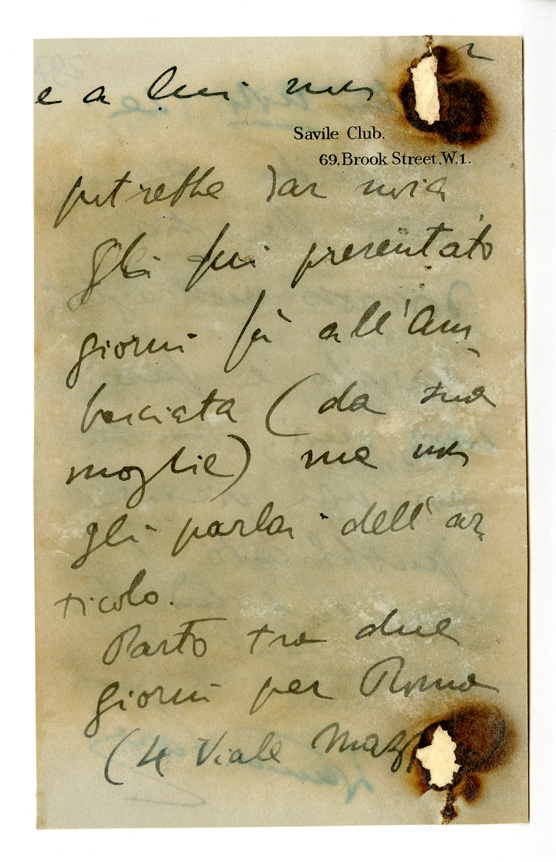 e a lui non
Savile Club,
69, Brook Street, W.1.
potrebbe dar noia
Gli fui presentato
giorni fà all'Am
basciata (da sua
moglie) ma non
gli parlai dell'ar
ticolo.
Parto tra due
giorni per Roma
(4 Viale Mazz